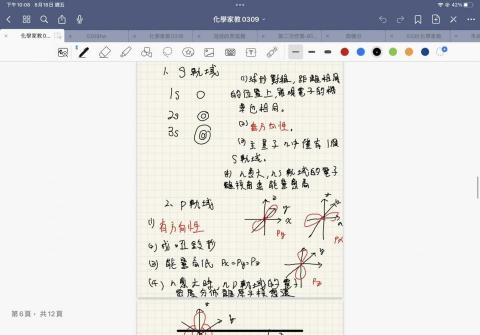 下午10:08 8月18日 週五
42%
化學家教 0309
化學家教0...
0309hw
化學家教0308
1. S軌域
(1) 球形對稱，距離相同
的位置上，發現電子的機
率也相同。
1s
2s
3s
(2) 無方向性。
(3) 主量子 n 中僅有1個
S軌域。
(4) n愈大，ns軌域的電子
離核愈遠 能量愈高
2. P軌域
(1) 有方向性
z
y
x
Py
Px
(2) 成 啞鈴形
(3) 能量高低 Px=Py=Pz
Pz
(4) n愈大時，nP軌域的電子
密度分佈離原子核愈遠
第 6 頁，共 12 頁